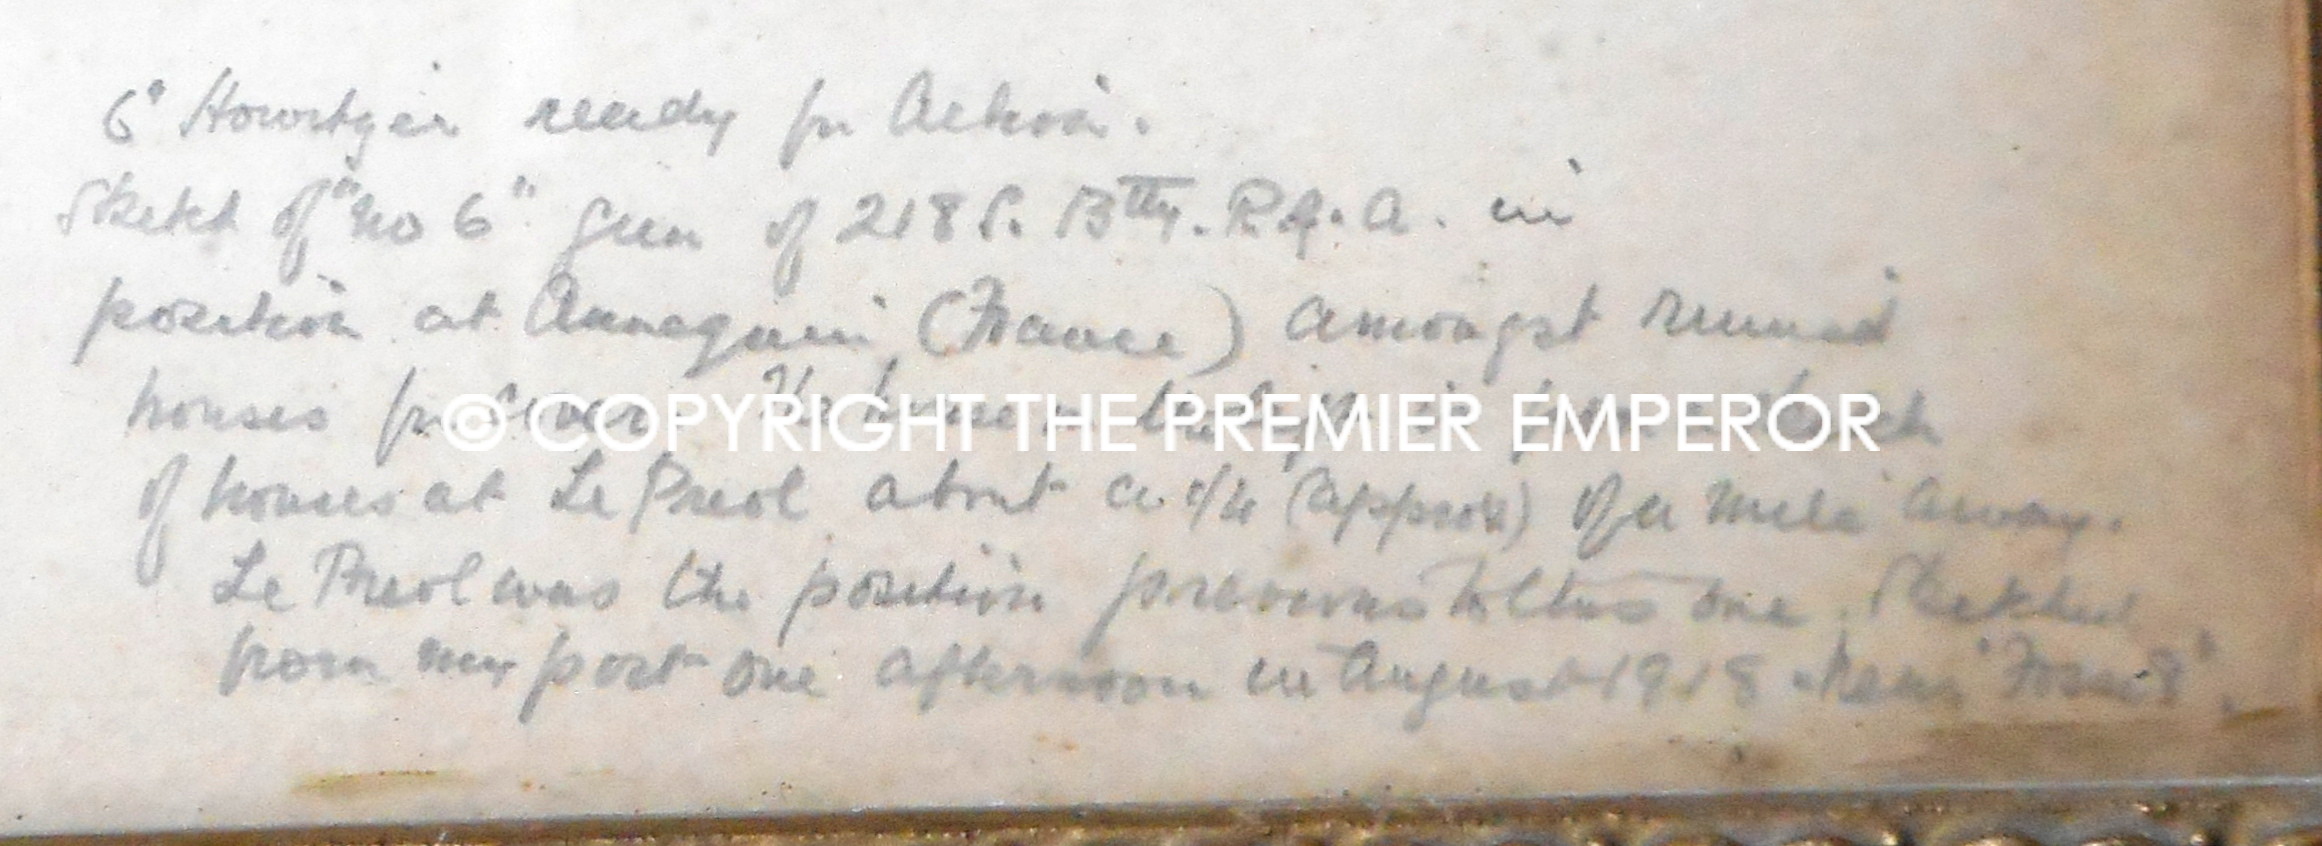 6" Howitzer ready for Action.
Sketch of "No 6" gun of 218 S. Btty. R.G.A. in
position at Annequin (France) amongst ruined
houses for cover. The
© COPYRIGHT THE PREMIER EMPEROR
of houses at Le Preol about a 1/4 (approx) of a mile away.
Le Preol was the position previous to this one. Sketched
from my post one afternoon in August 1918 Near 'Fosse 9'.